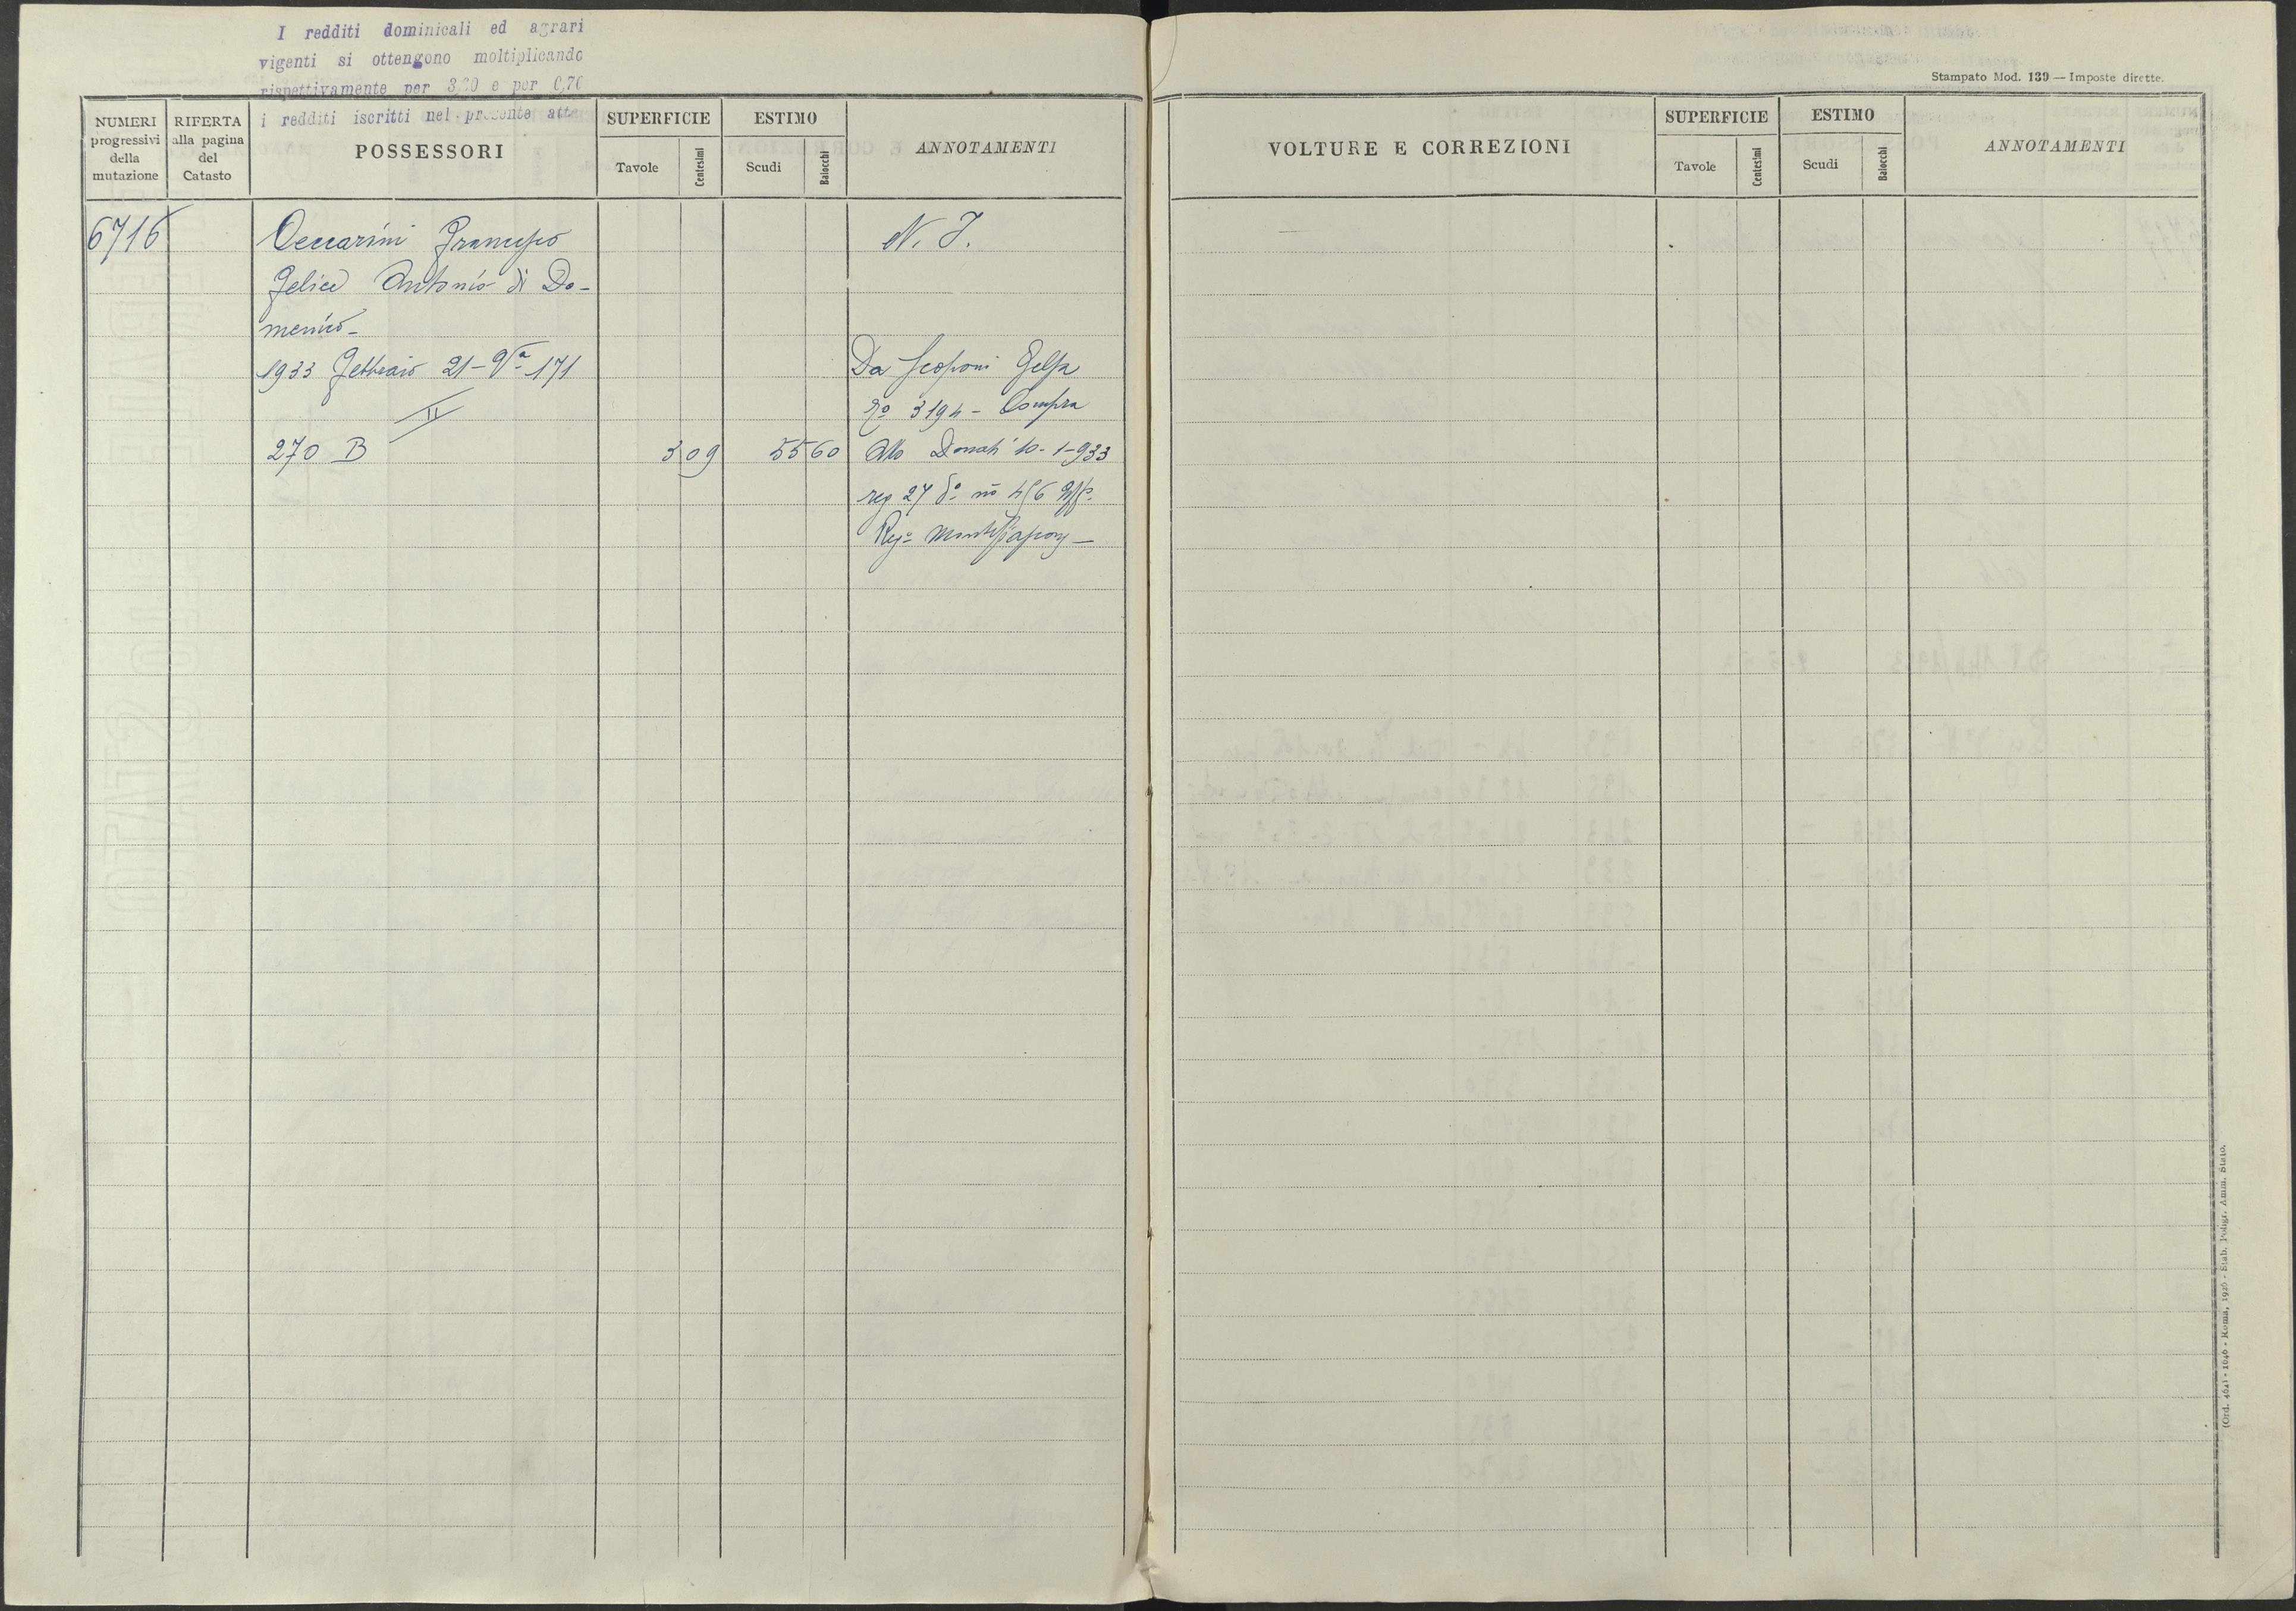 I redditi dominicali ed agrari
vigenti si ottengono moltiplicando
rispettivamente per 3,20 e per 0,70
i redditi iscritti nel presente atto
Stampato Mod. 139 — Imposte dirette.
NUMERI progressivi della mutazione
RIFERTA alla pagina del Catasto
POSSESSORI
SUPERFICIE
Tavole
Centesimi
ESTIMO
Scudi
Baiocchi
ANNOTAMENTI
VOLTURE E CORREZIONI
SUPERFICIE
Tavole
Centesimi
ESTIMO
Scudi
Baiocchi
ANNOTAMENTI
6716
Ceccarini Francesco
N. I.
Felice Antonio di Do-
menico-
1933 Febbraio 21 - Vra 171
Da Scoponi
no 3194 - Compra
II
270 B
3 09
55 60
Atto Donati 10-1-933
reg 27 do no
Rego
(Ord. 4641 - 1646 - Roma, 1926 - Stab. Poligr. Amm. Stato.